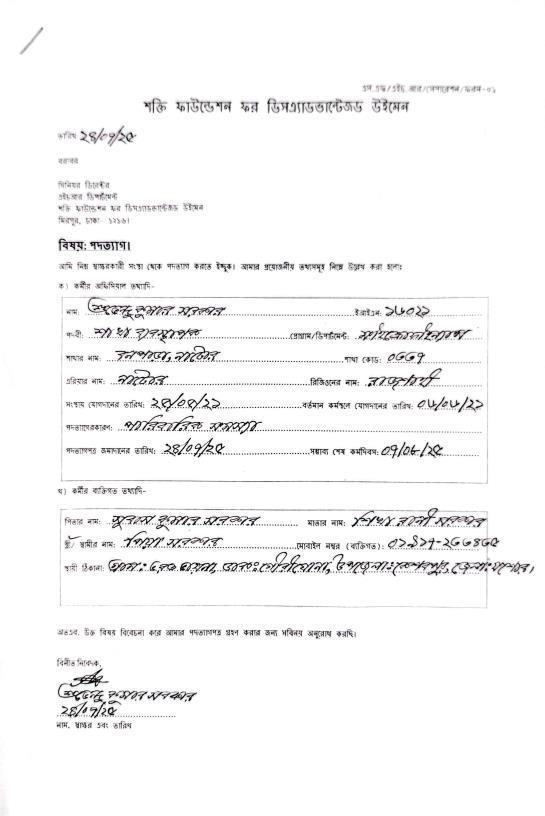 এস.এফ/এইচ.আর/সেপারেশন/ফরম-০১
শক্তি ফাউন্ডেশন ফর ডিসএ্যাডভান্টেজড উইমেন
তারিখ ২৪/০৭/২৫
বরাবর
সিনিয়র ডিরেক্টর
এইচআর ডিপার্টমেন্ট
শক্তি ফাউন্ডেশন ফর ডিসএ্যাডভান্টেজড উইমেন
মিরপুর, ঢাকা- ১২১৬।
বিষয়: পদত্যাগ।
আমি নিম্ন স্বাক্ষরকারী সংস্থা থেকে পদত্যাগ করতে ইচ্ছুক। আমার প্রয়োজনীয় তথ্যসমূহ নিম্নে উল্লেখ করা হলোঃ
ক) কর্মীর অফিসিয়াল তথ্যাদি-
নাম: কুমার সরকার ইআইএন:
পদবী: শাখা ব্যবস্থাপক প্রোগ্রাম/ডিপার্টমেন্ট: মাইক্রোফাইন্যান্স
শাখার নাম: বনপাড়া, নাটোর শাখা কোড: ০৫৫৭
এরিয়ার নাম: নাটোর রিজিওনের নাম: রাজশাহী
সংস্থায় যোগদানের তারিখ: বর্তমান কর্মস্থলে যোগদানের তারিখ:
পদত্যাগেরকারণ: পারিবারিক সমস্যা
পদত্যাগপত্র জমাদানের তারিখ: ২৪/০৭/২৫ সম্ভাব্য শেষ কর্মদিবস: ০৭/০৮/২৫
খ) কর্মীর ব্যক্তিগত তথ্যাদি-
পিতার নাম: কুমার সরকার মাতার নাম: শিখা রানী সরকার
স্ত্রী/ স্বামীর নাম: প্রিয়া সরকার মোবাইল নম্বর (ব্যক্তিগত):
স্থায়ী ঠিকানা: গ্রাম: ডাকঃ গৌরীঘোনা, উপজেলাঃ কেশবপুর, জেলাঃ যশোর।
অতএব, উক্ত বিষয় বিবেচনা করে আমার পদত্যাগপত্র গ্রহণ করার জন্য সবিনয় অনুরোধ করছি।
বিনীত নিবেদক,
কুমার সরকার
২৪/০৭/২৫
নাম, স্বাক্ষর এবং তারিখ